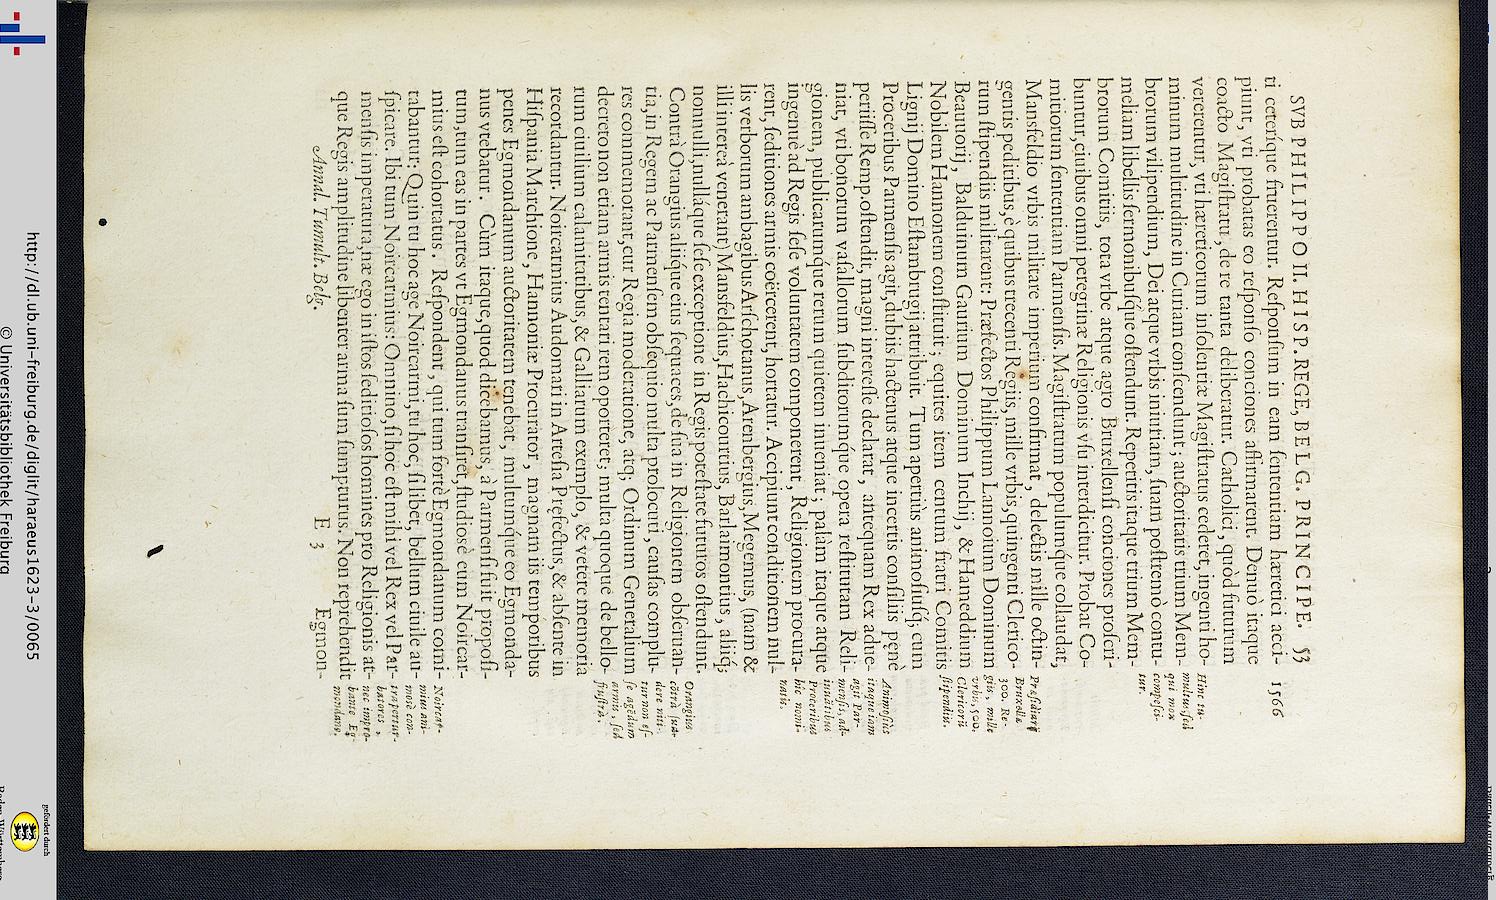 SVB PHILIPPO II. HISP. REGE, BELG. PRINCIPE. 53
ti ceteríque fruerentur. Reſponſum in eam ſententiam hæretici acci- 1566
piunt, vti probatas eo reſponſo conciones affirmarent. Denuò itaque
coacto Magiſtratu, de re tanta deliberatur. Catholici, quòd futurum
vererentur, vti hæreticorum inſolentiæ Magiſtratus cederet, ingenti ho-
minum multitudine in Curiam conſcendunt; auctoritatis trium Mem-
brorum vilipendium, Dei atque vrbis iniuriam, ſuam poſtremò contu-
meliam libellis ſermonibuſque oſtendunt. Repertis itaque trium Mem-
brorum Comitiis, tota vrbe atque agro Bruxellenſi conciones proſcri-
buntur, ciuibus omni peregrinæ Religionis vſu interdicitur. Probat Co-
mitiorum ſententiam Parmenſis. Magiſtratum populumq́ue collaudat,
Mansfeldio vrbis militare imperium confirmat, delectis mille octin-
gentis peditibus, è quibus trecenti Regiis, mille vrbis, quingenti Clerico-
rum ſtipendiis militarent: Præfectos Philippum Lannoium Dominum
Beauuorij, Balduinum Gaurium Dominum Inchij, & Hameddium
Nobilem Hannonem conſtituit; equites item centum fratri Comitis
Lignij Domino Eſtambrugij attribuit. Tum apertiùs animoſiuſq́; cum
Proceribus Parmenſis agit, dubiis hactenus atque incertis conſiliis penè
periiſſe Remp. oſtendit, magni intereſſe declarat, antequam Rex adue-
niat, vti bonorum vaſallorum ſubditorumq́ue opera reſtitutam Reli-
gionem, publicarumq́ue rerum quietem inueniat; palàm itaque atque
ingenuè ad Regis ſeſe voluntatem componerent, Religionem procura-
rent, ſeditiones armis coërcerent, hortatur. Accipiunt conditionem nul-
lis verborum ambagibus Arſchotanus, Arenbergius, Megemus, (nam &
illi intereà venerant) Mansfeldius, Hachicourtius, Barlaimontius, aliiq́;
nonnulli, nulláque ſeſe exceptione in Regis poteſtate futuros oſtendunt.
Contrà Orangius aliique eius ſequaces, de ſua in Religionem obſeruan-
tia, in Regem ac Parmenſem obſequio multa prolocuti, cauſas complu-
res commemorant, cur Regia moderatione, atq; Ordinum Generalium
decreto non etiam armis tentari rem oporteret; multa quoque de bello-
rum ciuilium calamitatibus, & Galliarum exemplo, & vetere memoria
recordantur. Noircarmius Audomari in Arteſia Præfectus, & abſente in
Hiſpania Marchione, Hannoniæ Procurator, magnam iis temporibus
penes Egmondanum auctoritatem tenebat, multumq́ue eo Egmonda-
nus vtebatur. Cùm itaque, quod dicebamus, à Parmenſi fuit propoſi-
tum, tum eas in partes vt Egmondanus tranſiret, ſtudiosè cum Noircar-
mius eſt cohortatus. Reſpondent, qui tum fortè Egmondanum comi-
tabantur: Quin tu hoc age Noircarmi, tu hoc, ſi libet, bellum ciuile au-
ſpicare. Ibi tum Noircarmius: Omnino, ſi hoc eſt mihi vel Rex vel Par-
menſis imperatura, næ ego in iſtos ſeditioſos homines pro Religionis at-
que Regis amplitudine libenter arma ſum ſumpturus. Non reprehendit
Annal. Tumult. Belg. E 3 Egmon-
Hinc tu-
multus, ſed
qui mox
compeſci-
tur.
Præſidiarij
Bruxellæ
300. Re-
gis, mille
vrbis, 500.
Clericorũ
ſtipendiis.
Animoſius
itaque iam
agit Par-
menſis, ad-
inuitatibus
Proceribus
hîc nomi-
natis.
Orangius
cõtrà ſua-
dere niti-
tur non eſ-
ſe agẽdum
armis, ſed
fruſtrà.
Noircar-
mius ani-
mosè con-
tra pertur-
batores,
nec impro-
bante Eg-
mondano.
http://dl.ub.uni-freiburg.de/diglit/haraeus1623-3/0065
© Universitätsbibliothek Freiburg
gefördert durch